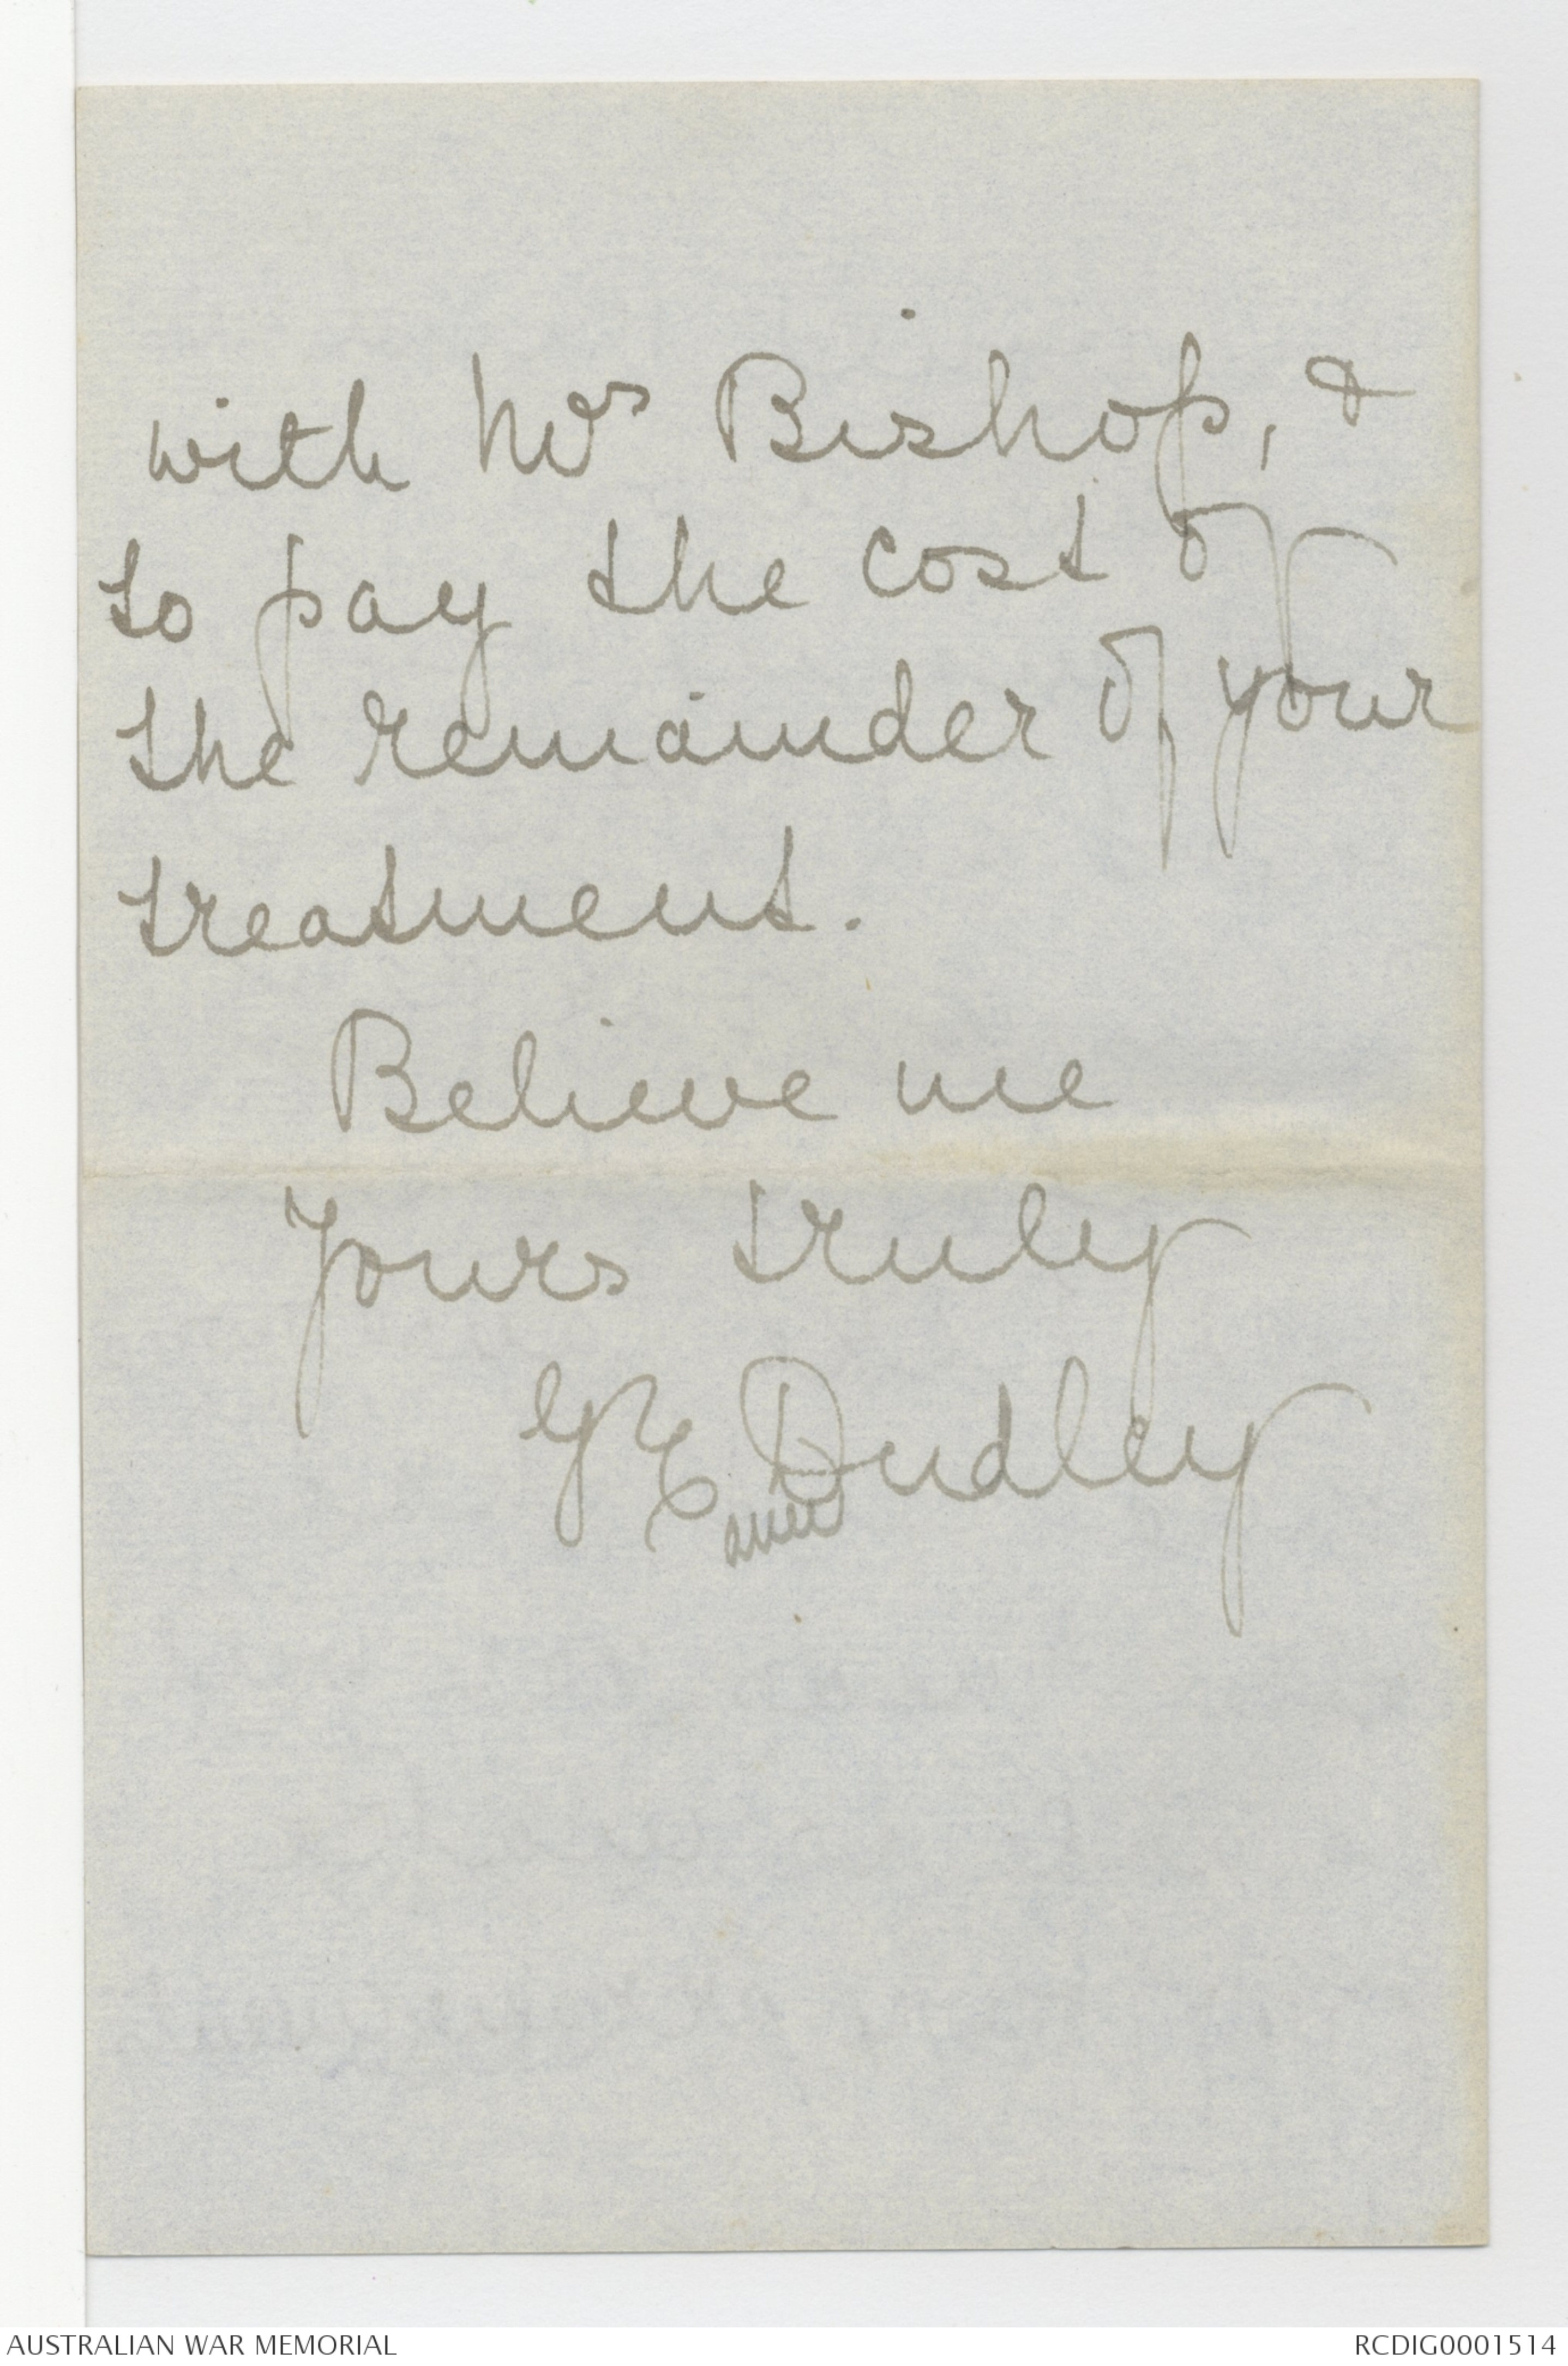 with Mrs Bishop, &
to pay the cost of
the remainder of your
treatment.
Believe me
Yours truly
Dudley
AUSTRALIAN WAR MEMORIAL
RCDIG0001514